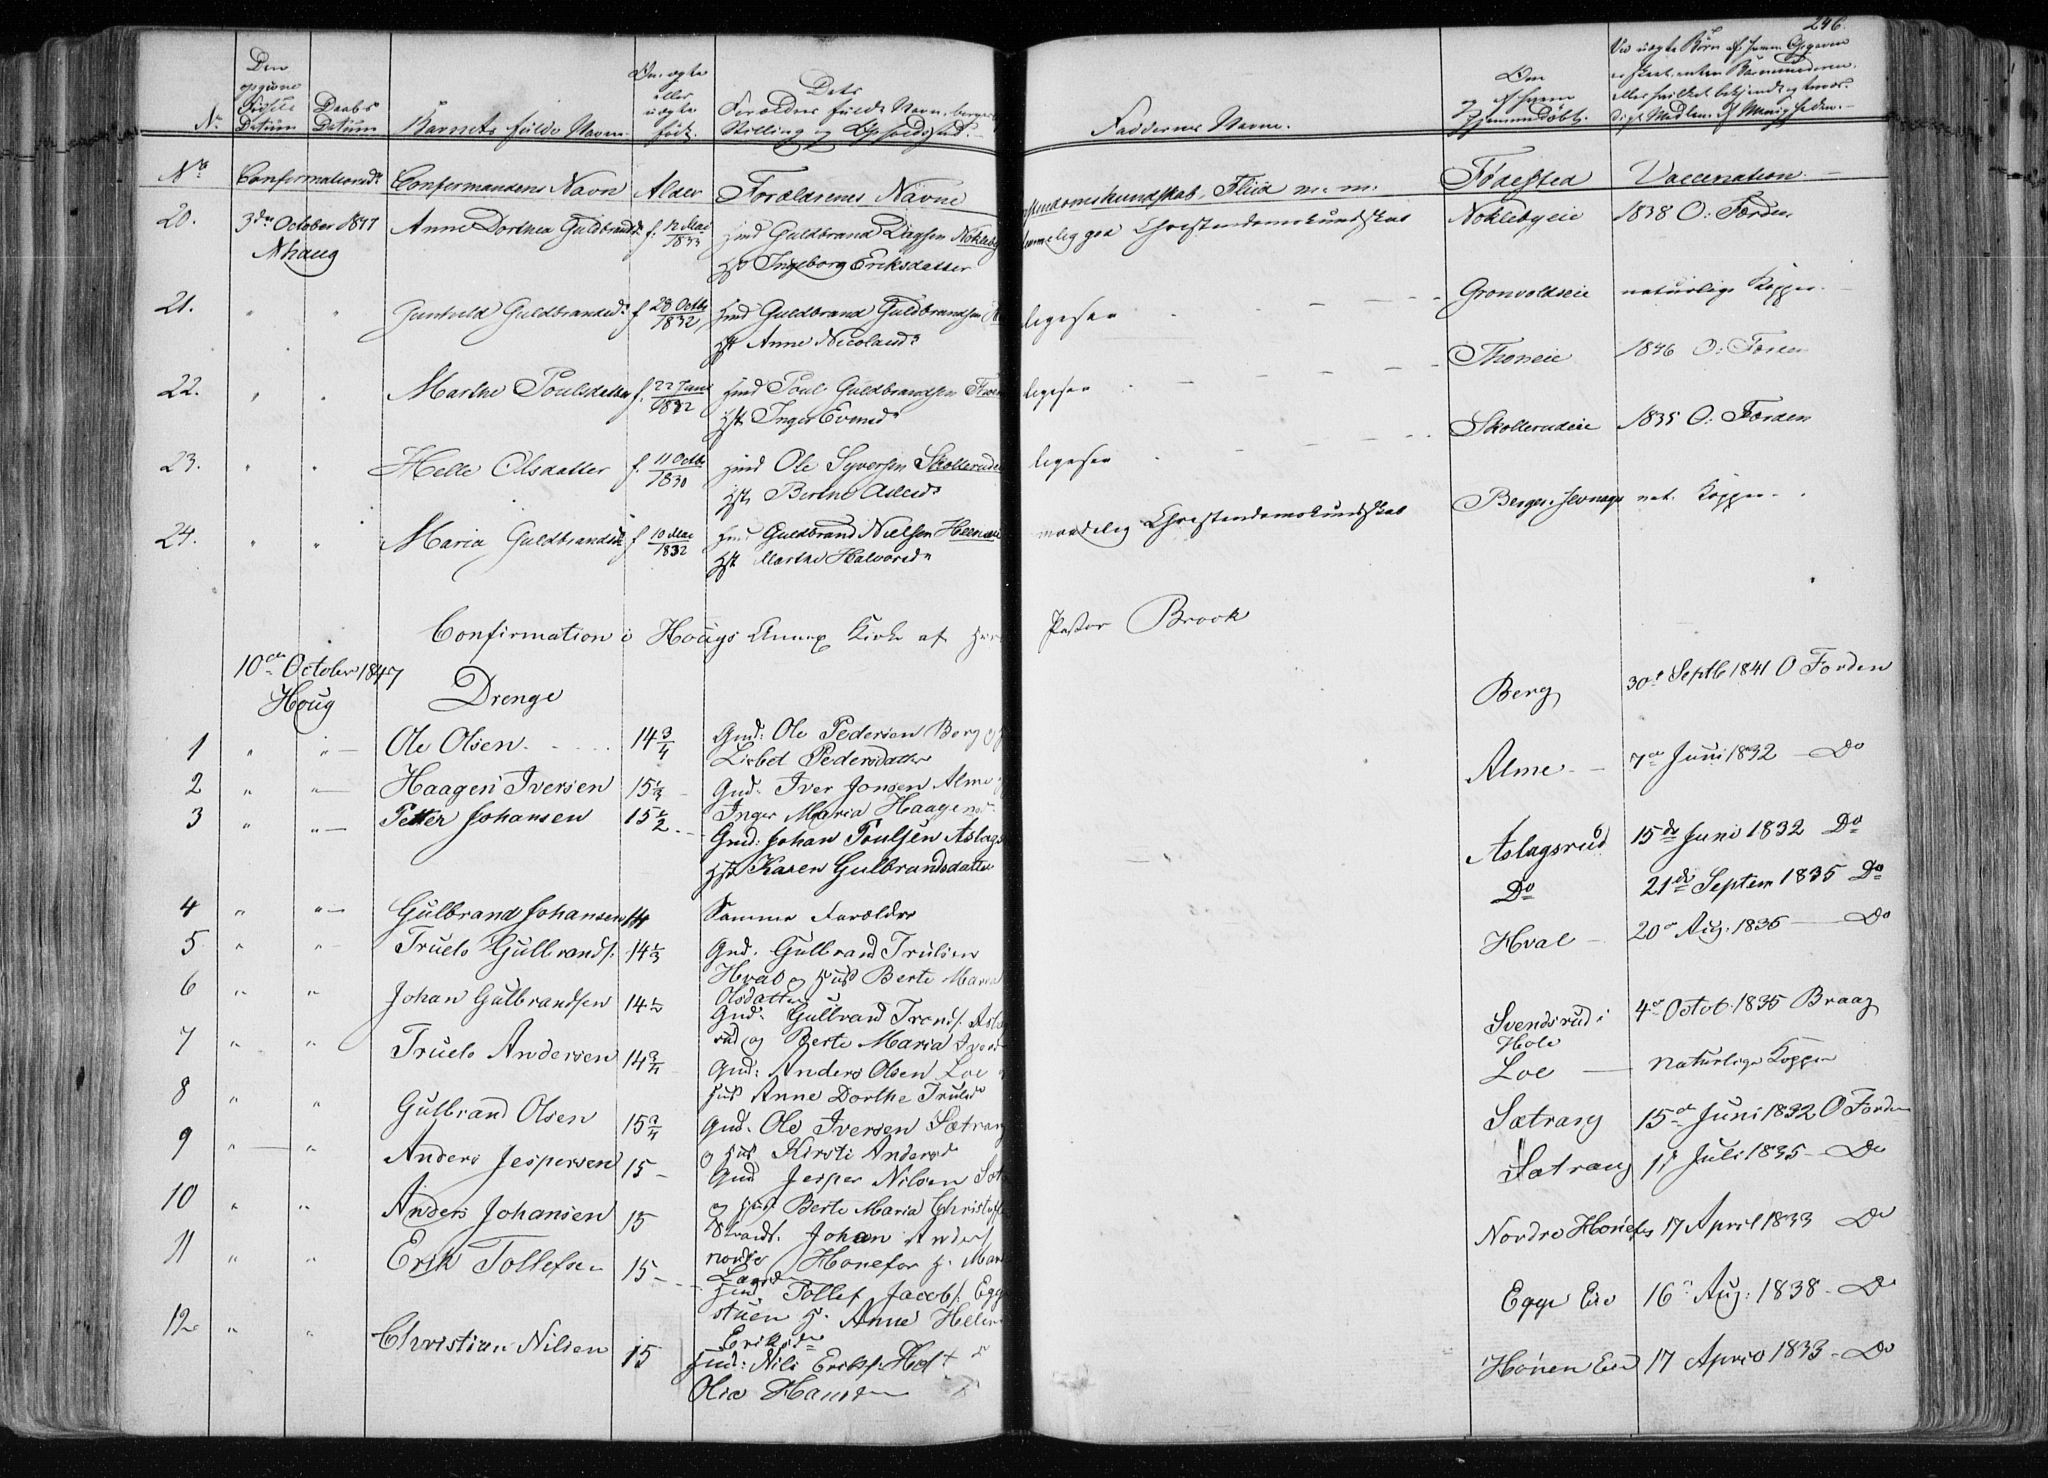 246.
Den
opgivne
Fødsels
Datum
Daabs
Datum
No
Barnets fulde Navn
Om ægte
eller
uægte
født.
Dets
Forældres fulde Navn, borgerl.
Stilling og Opholdssted.
Faddernes Navne.
Om
og af hvem
hjemmedøbt.
Ved uægte Børn af hvem Opgaven
er skeet, enten Barnemoderen
eller hvilket bekjendt og trovær-
digt Medlem af Menigheden.
No Confirmationsd. Confirmandens Navn Alder Forældrenes Navne
Christendomskundskab, Fliid m. m. Fødested Vaccination
20. 3die October 1847 Anne Dorthea Guldbrandsd. f. 12 Mai 1833 Huusmd Guldbrand Dagsen Nokleby
Nhaug Hst. Ingeborg Eriksdatter
temmelig god Christendomskundskab Noklebyeie 1838 O: Forden
21. " " Gunhild Guldbrandsd. f. 28 Octbr 1832 Hmd Guldbrand Guldbrandsen
Hst Anne Nicolaisd.
ligesaa Gronvoldseie naturlige Kopper.
22. " " Marthe Poulsdatter f. 22 Juni 1832 Hmd Poul Guldbrandsen
Hst. Inger Evensd.
ligesaa Thoneie 1846 O: Forden
23. " " Helle Olsdatter f. 11 Octbr 1830 Hmd Ole Syversen Skollerudeie
Hst. Berthe Asleds
ligesaa Skollerudeie 1835 O: Forden
24. " " Maria Guldbrandsd. f. 10 Mai 1832 Hmd Guldbrand Nielsen
Hst Marthe Halvorsd.
maadelig Christendomskundskab Berger i Jevnager nat. Kopper
Confirmation i Hougs Annex Kirke af Herr Pastor Brock
10de October 1847
Houg Drenge
1 " " Ole Olsen 14 3/4 Gmd: Ole Pedersen Berg og
Lisbet Pedersdatter
Berg 30te Septb 1841 O Forden
2 " " Haagen Iversen 15 1/3 Gmd. Iver Jonsen Alme
Inger Maria Haagensd.
Alme 7de Juni 1832 Do
3 " " Petter Johansen 15 1/2 Gmd: Johan Poulsen Aslags
Hst Karen Gulbrandsdatter
Aslagsrud 15de Juni 1832 Do
4 " " Gulbrand Johansen 14 Samme Forældre
Do 21de Septem 1835 Do
5 " " Truels Gulbrands. 14 1/3 Gmd. Gulbrand Trulsen
Hval og Hust Berte Maria
Olsdatter
Hval 20de Aug. 1835 Do
6 " " Johan Gulbrandsen 14 1/2 Gmd. Gulbrand Trons. Aslag
rud og Berte Maria Iversd
Svendsrud i
Hole
4de Octob. 1835 Braag
7 " " Truels Andersen 14 3/4 Gmd: Anders Olsen Loe
Hust Anne Dorthe Trulsd
Loe naturlige Kopper
8 " " Gulbrand Olsen 15 3/4 Gmd. Ole Iversen Sætrang
og Hust Kirsti Andersd
Sætrang 15de Juni 1832 O Forden
9 " " Anders Jespersen 15 Gmd Jesper Nilsen Sæt
og Hust Berte Maria Christof
Sætrang 17 Juli 1835 Do
10 " " Anders Johansen 15 Strands. Johan Anders
nordre Honefos H. Mar
Larsd
Nordre Honefos 17 April 1833 Do
11 " " Erik Tollefsen 15 Hmd Tollef Jacobs. Egge
stuen H. Anne Helene
Eriksd
Egge Eie 16 Aug: 1838 Do
12 " " Christian Nilsen 15 Hmd: Nils Eriks.
Olia Hansd
Hönen Eie 17 April 1833 Do